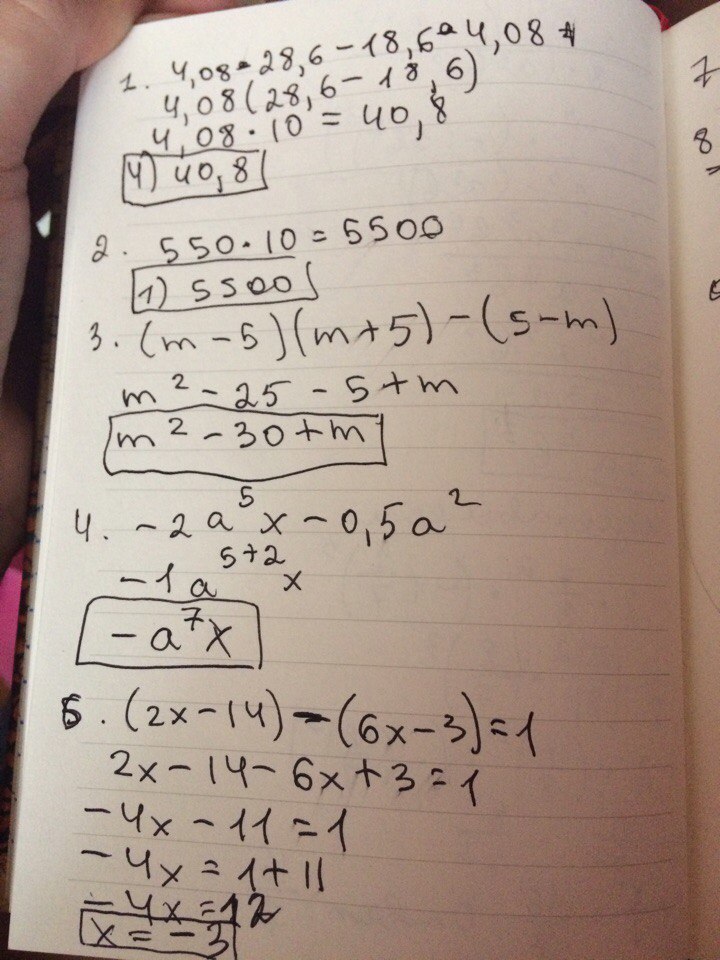 1. 4,08 · 28,6 – 18,6 · 4,08
4,08(28,6 – 18,6)
4,08 · 10 = 40,8
4) 40,8
2. 550 · 10 = 5500
1) 5500
3. (m – 5)(m + 5) – (5 – m)
m² – 25 – 5 + m
m² – 30 + m
4. – 2 a⁵ x – 0,5 a²
– 1 a⁵⁺² x
– a⁷ x
5. (2x – 14) – (6x – 3) = 1
2x – 14 – 6x + 3 = 1
– 4x – 11 = 1
– 4x = 1 + 11
– 4x = 12
x = – 3
7
8